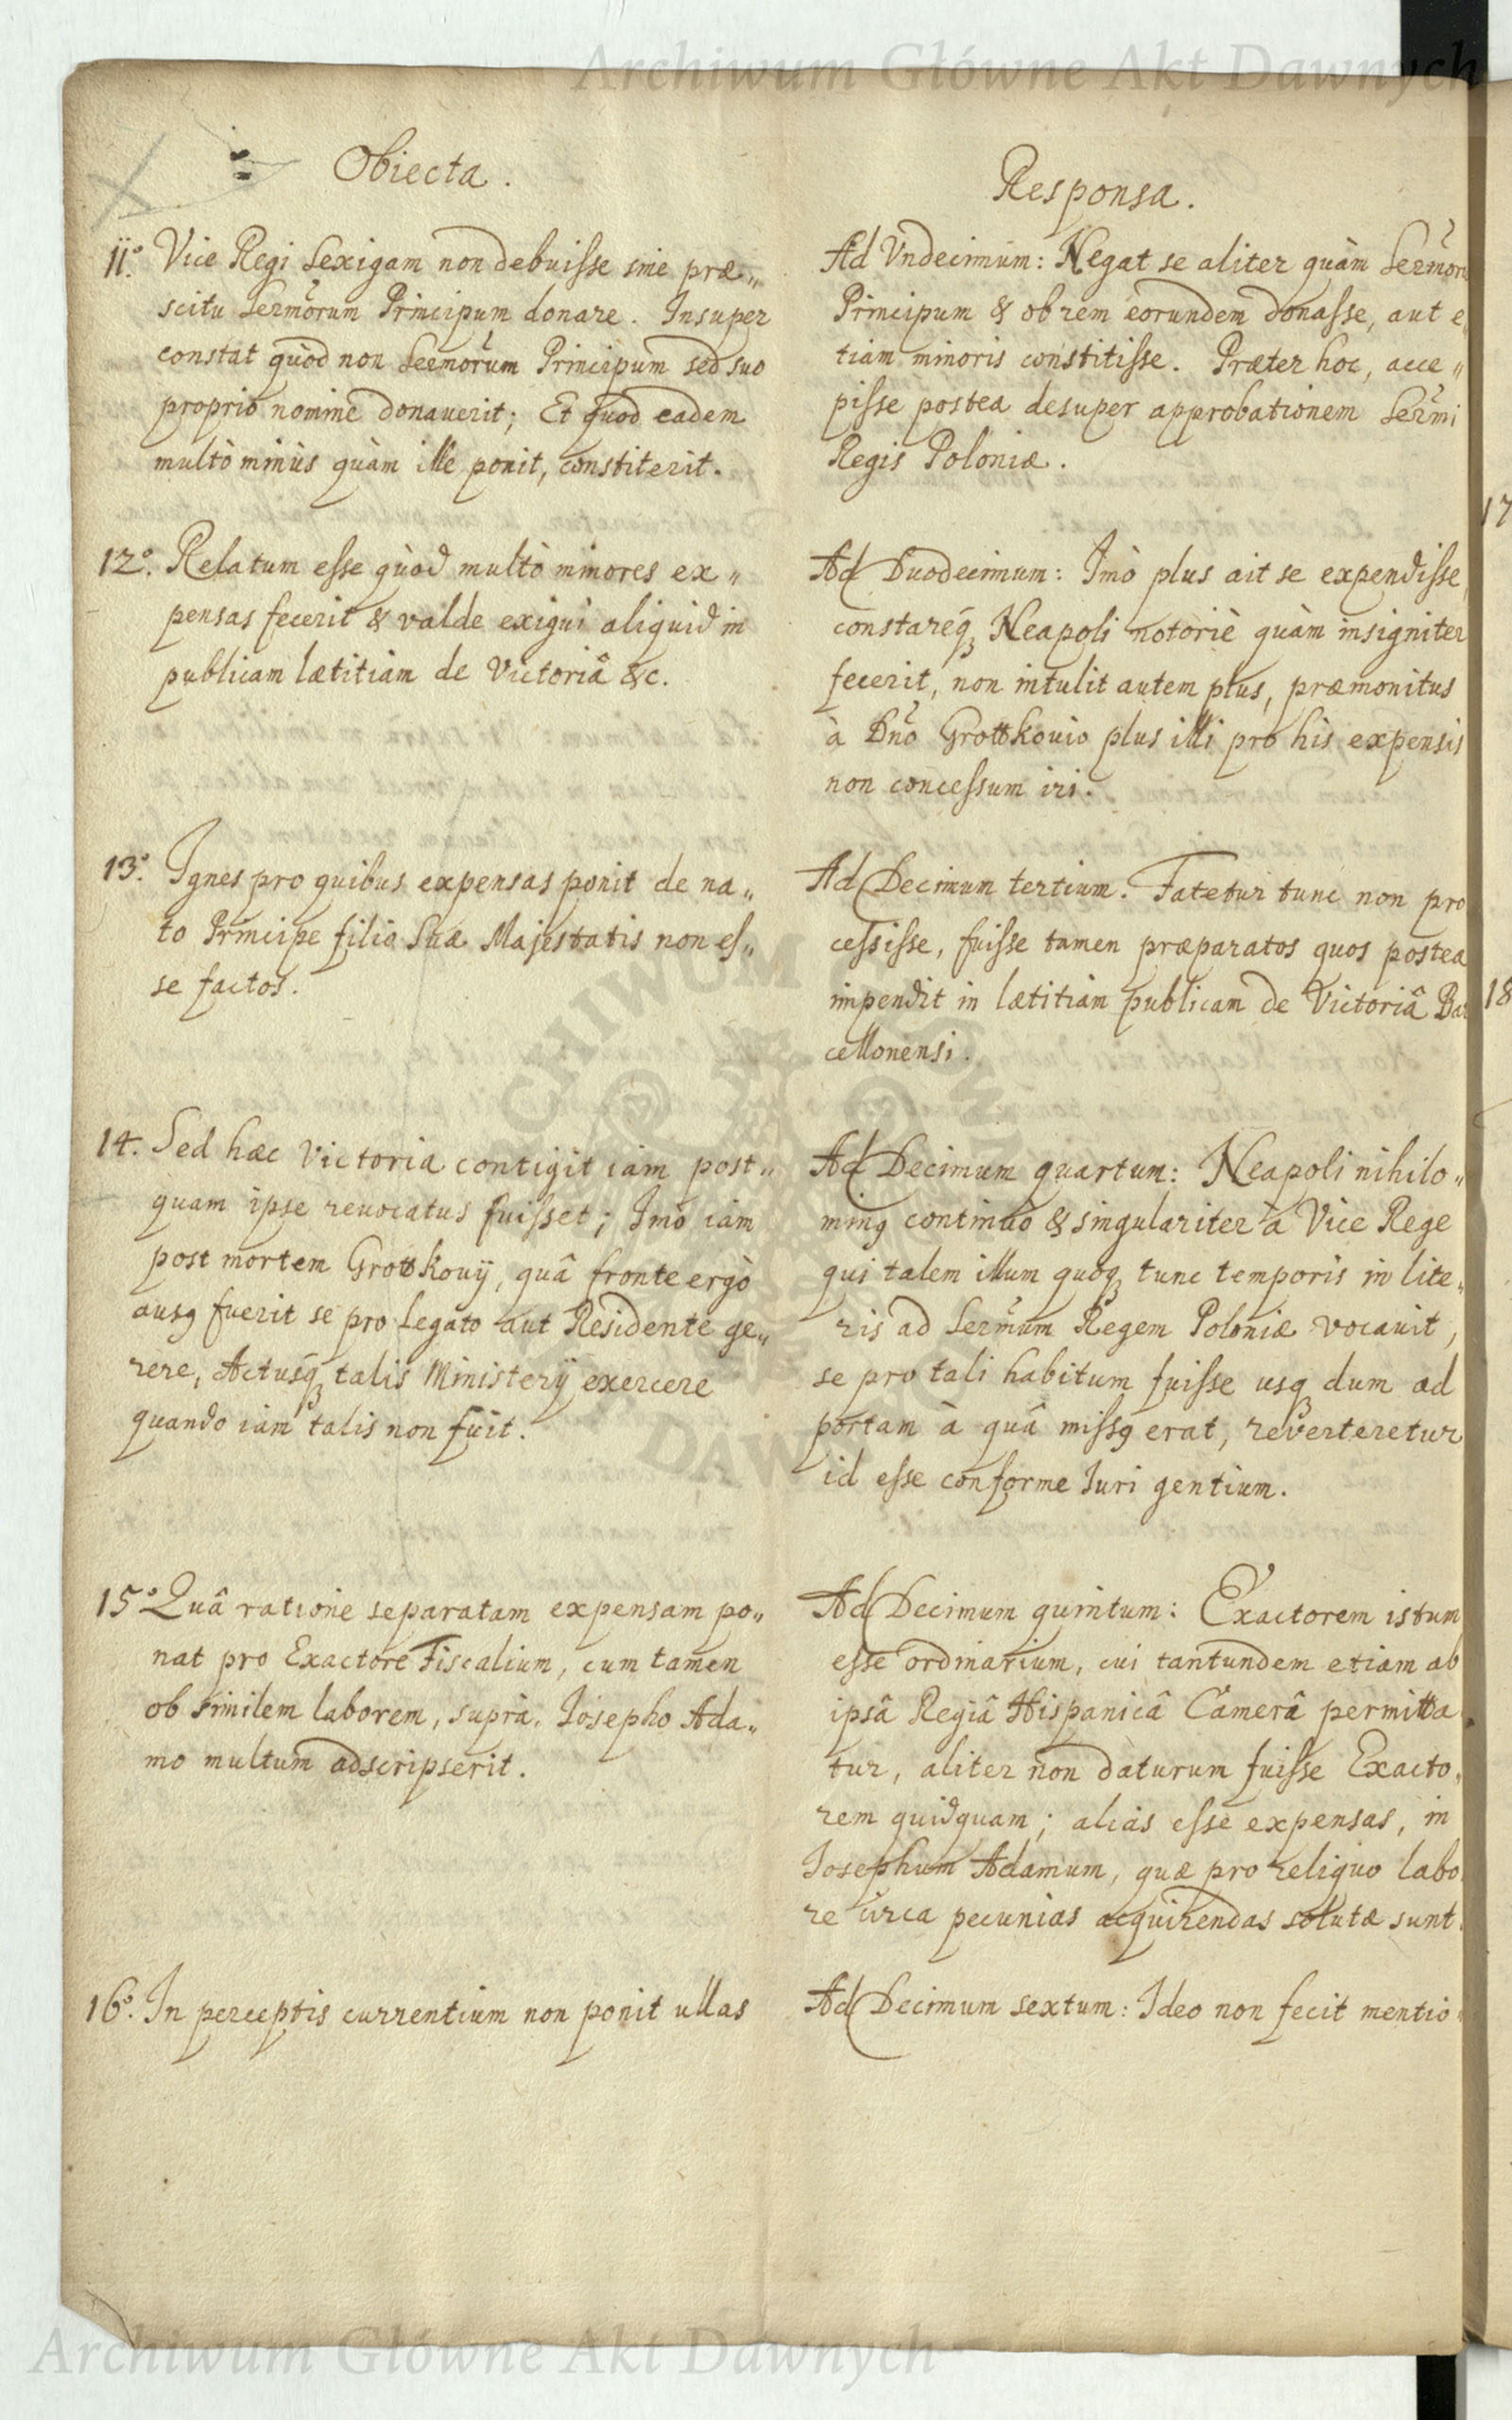 Archiwum Główne Akt Dawnych
Obiecta.
11.° Vice Regi Lexigam non debuisse sine præ„
scitu Sermõrum Principum donare. Insuper
constat quòd non Sermõrum Principum sed suo
proprio nomine donauerit; Et quod eadem
multò minùs quàm ille ponit, constiterit.
12.° Relatum esse quòd multò minores ex„
pensas fecerit & valde exigui aliquid in
publicam lætitiam de Victoriâ &c.
13.° Ignes pro quibus expensas ponit de na„
to Principe filio Suæ Majestatis non es„
se factos.
14. Sed hæc Victoria contigit iam post„
quam ipse reuocatus fuisset; Imò iam
post mortem Grottkouij, quâ fronte ergò
ausꝯ fuerit se pro Legato aut Residente ge„
rere, Actusqꝫ talis Ministerij exercere
quando iam talis non fuit.
15.° Quâ ratione separatam expensam po„
nat pro Exactore Fiscalium, cum tamen
ob similem laborem, suprà, Iosepho Ada„
mo multum adscripserit.
16.° In perceptis currentium non ponit ullas
Responsa.
Ad Vndecimum: Negat se aliter quàm Sermõru
Principum & ob rem eorundem donasse, aut e
tiam minoris constitisse. Præter hoc, acce„
pisse postea desuper approbationem Sermĩ
Regis Poloniæ.
Ad Duodecimum: Imò plus ait se expendisse
constareqꝫ Neapoli notoriè quàm insigniter
fecerit, non intulit autem plus, præmonitus
à Dnõ Grottkouio plus illi pro his expensis
non concessum iri.
Ad Decimum tertium. Fatetur tunc non pro
cessisse, fuisse tamen præparatos quos postea
impendit in lætitiam publicam de Victoriâ Bar
cellonensi.
Ad Decimum quartum: Neapoli nihilo„
minꝯ continuò & singulariter à Vice Rege
qui talem illum quoqꝫ tunc temporis in lite„
ris ad Sermũm Regem Poloniæ vocauit,
se pro tali habitum fuisse usqꝫ dum ad
portam à quâ missꝯ erat, reverteretur
id esse conforme Iuri gentium.
Ad Decimum quintum: Exactorem istum
esse ordinarium, cui tantundem etiam ab
ipsâ Regiâ Hispanicâ Camerâ permitta
tur, aliter non daturum fuisse Exacto„
rem quidquam; alias esse expensas, in
Iosephum Adamum, quæ pro reliquo labo
re circa pecunias acquirendas solutæ sunt.
Ad Decimum sextum: Ideo non fecit mentio„
17
18
Archiwum Główne Akt Dawnych